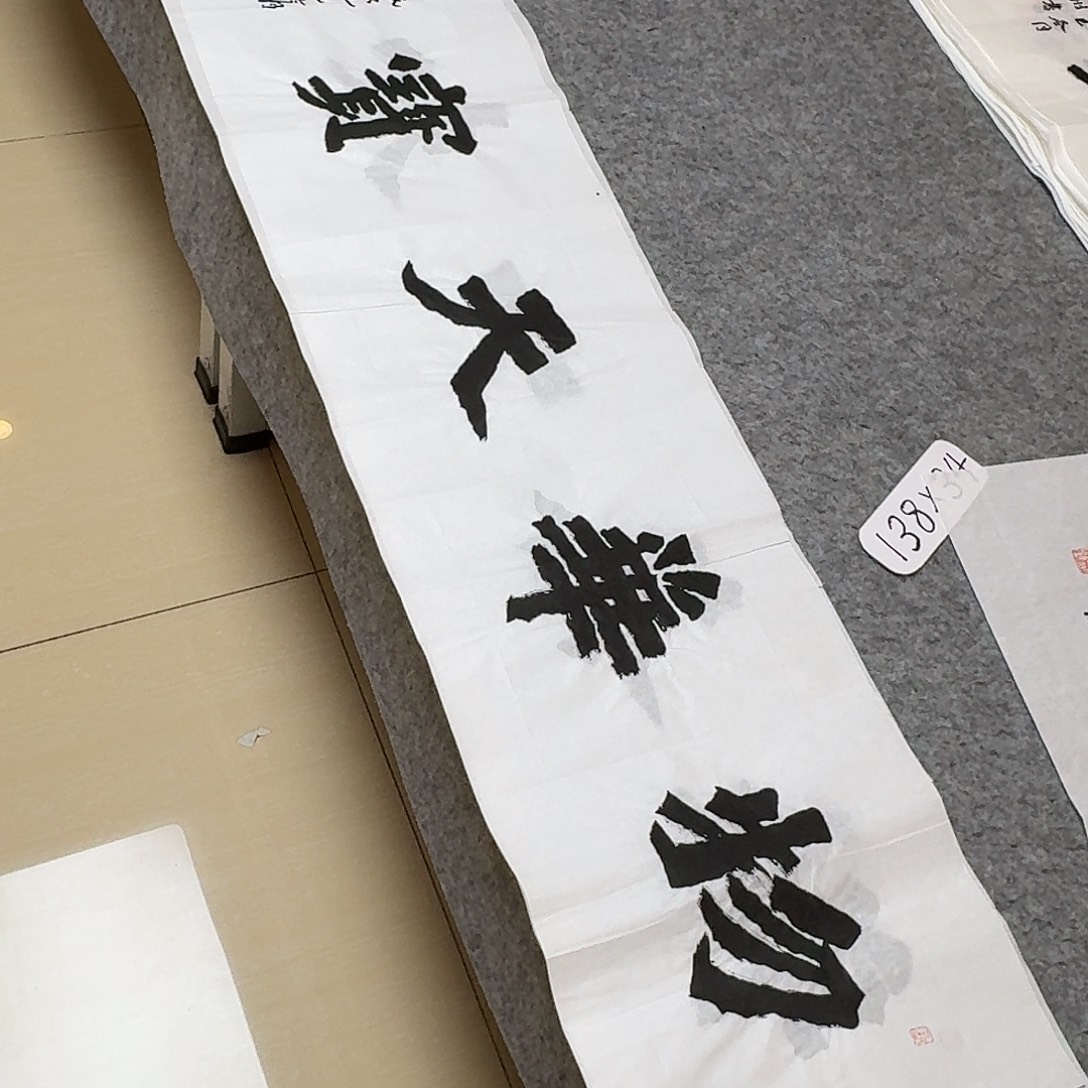 物華天寶
138×34